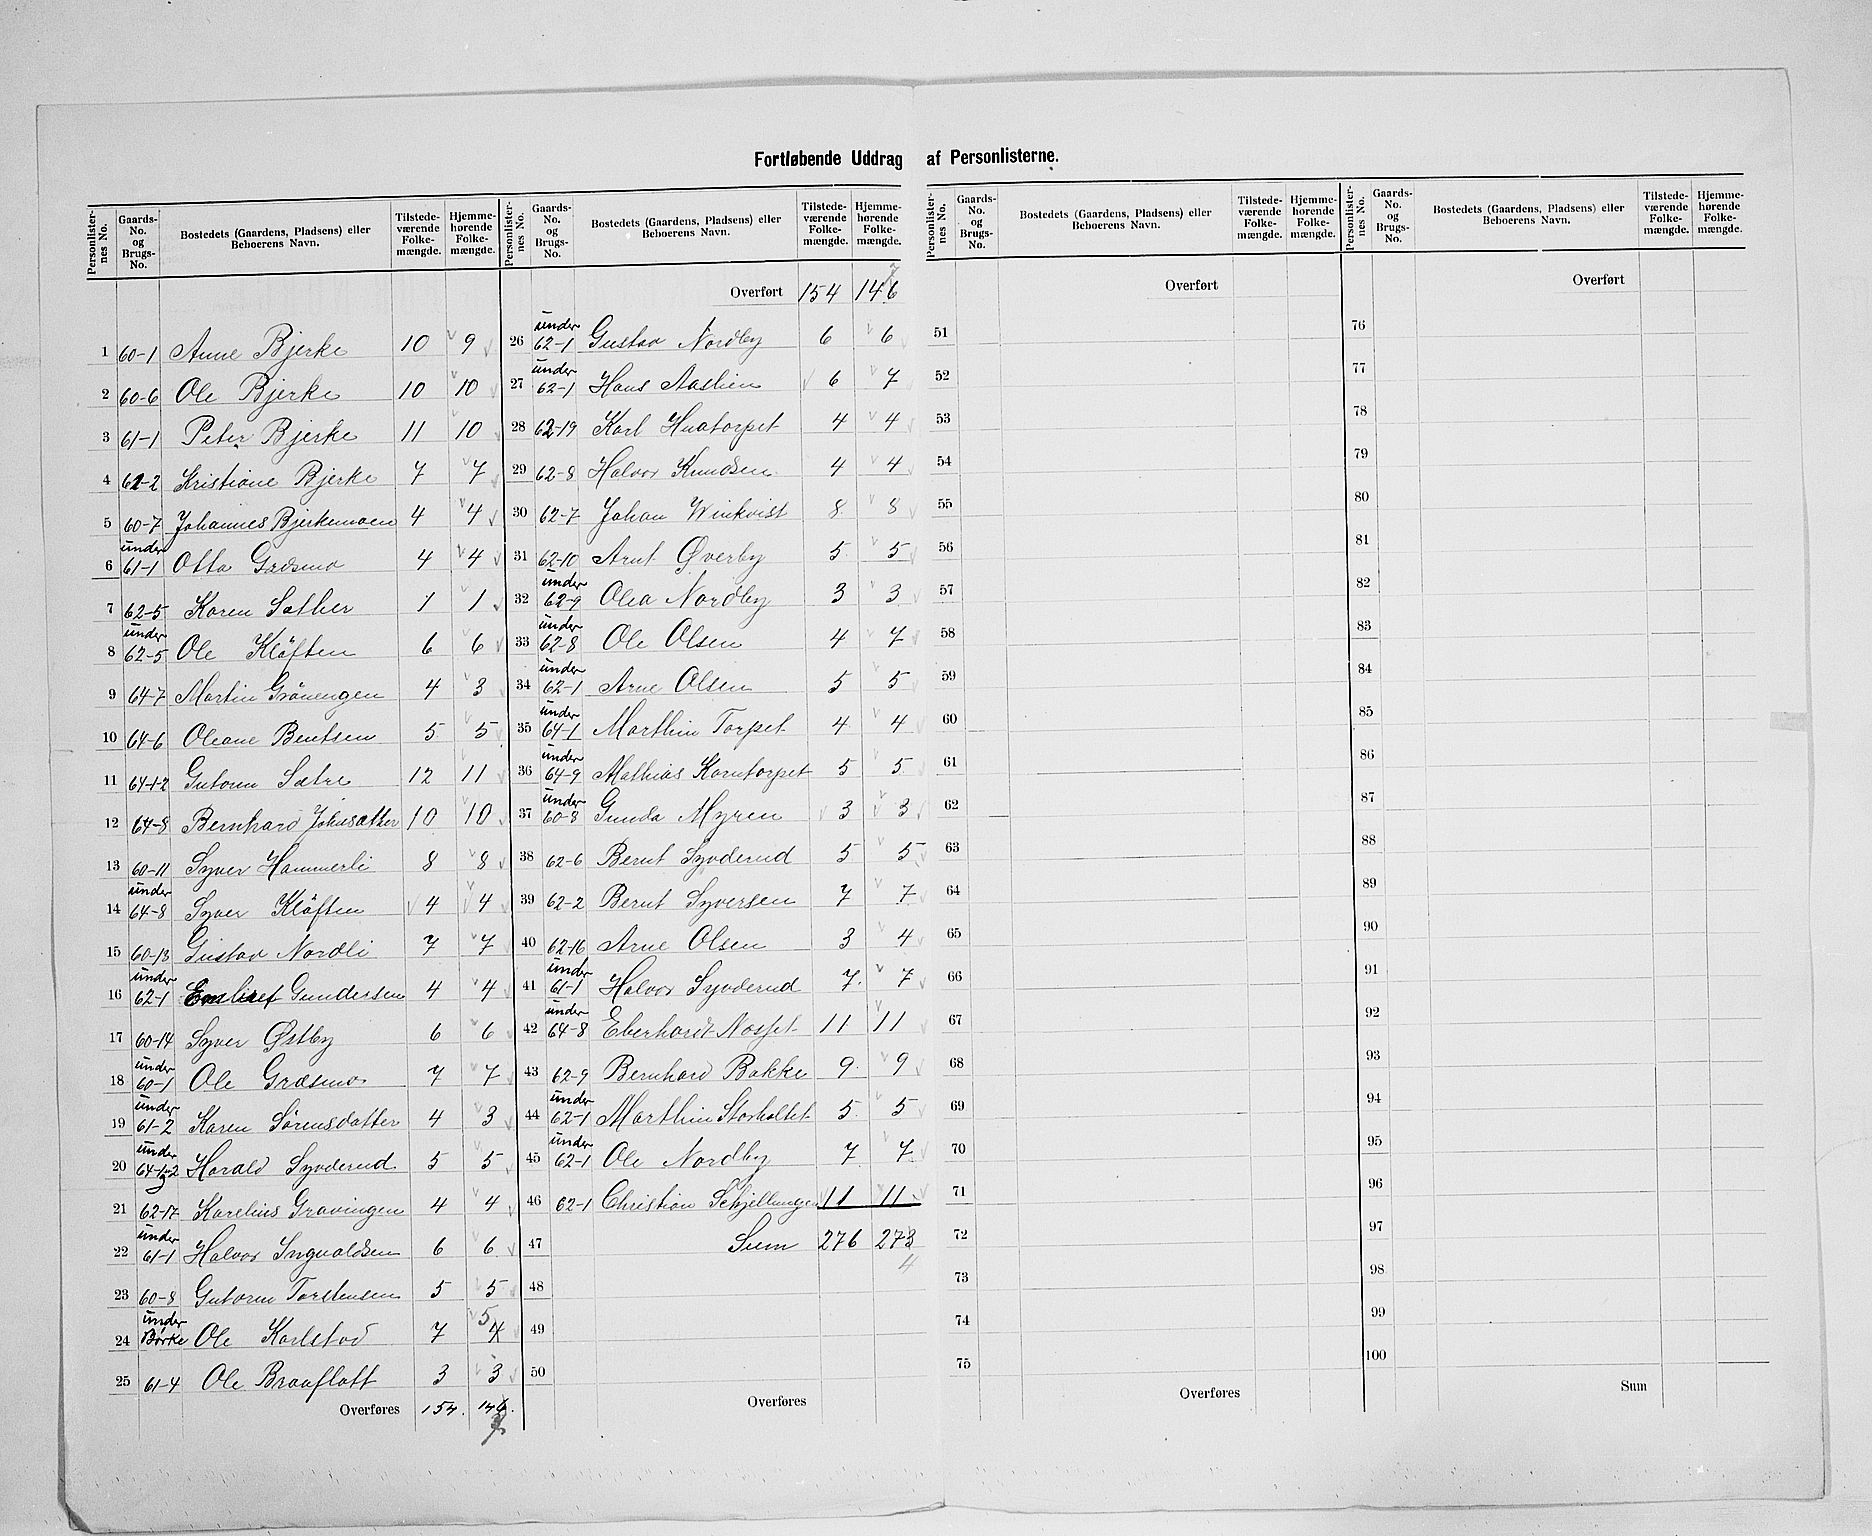 Fortløbende Uddrag af Personlisterne.
Personlister-nes No. Gaards-No. og Brugs-No. Bostedets (Gaardens, Pladsens) eller Beboerens Navn. Tilstede-værende Folke-mængde. Hjemme-hørende Folke-mængde.
1 60-1 Anne Bjerke 10 9
2 60-6 Ole Bjerke 10 10
3 61-1 Peter Bjerke 11 10
4 61-2 Kristiane Bjerke 7 7
5 60-7 Johannes Bjerkemoen 4 4
6 under 61-1 Otto Græsmo 4 4
7 62-5 Karen Sæther 1 1
8 under 62-5 Ole Kløften 6 6
9 64-7 Martin Grönengen 4 3
10 64-6 Oleane Bentsen 5 5
11 64-1-2 Gutorm Sætre 12 11
12 64-8 Bernhard Johnsætter 10 10
13 60-11 Syver Hammerli 8 8
14 under 64-8 Syver Kløften 4 4
15 60-13 Gustav Nordli 7 7
16 under 62-1 Gundersen 4 4
17 60-14 Syver Østby 6 6
18 under 60-1 Ole Græsmo 7 7
19 under 61-2 Karen Sörensdatter 4 3
20 under 64-1-2 Harald Syvderud 5 5
21 62-17 Karelius Gravingen 4 4
22 under 61-1 Halvor Ingvaldsen 6 6
23 60-8 Gutorm Torstensen 5 5
24 under Børke Ole Karlstad 7 5 4
25 61-4 Ole Braaflatt 3 3
Overføres 154. 146. 7
Personlister-nes No. Gaards-No. og Brugs-No. Bostedets (Gaardens, Pladsens) eller Beboerens Navn. Tilstede-værende Folke-mængde. Hjemme-hørende Folke-mængde.
Overført 154 146 7
26 under 62-1 Gustav Nordby 6 6
27 under 62-1 Hans Aaslien 6 7
28 62-19 Karl Huatorpet 4 4
29 62-8 Halvor Knudsen 4 4
30 62-7 Johan Winkvist 8 8
31 62-10 Arnt Øverby 5 5
32 under 62-9 Olea Nordby 3 3
33 under 62-8 Ole Olsen 4 4
34 under 62-1 Arne Olsen 5 5
35 under 64-1 Marthin Torpet 4 4
36 under 64-9 Mathias Korntorpet 5 5
37 under 60-8 Gunda Myren 3 3
38 62-6 Bernt Syvderud 5 5
39 62-2 Bernt Syversen 7 7
40 62-16 Arne Olsen 3 4
41 under 61-1 Halvor Syvderud 7 7
42 under 64-8 Eberhardt 11 11
43 62-9 Bernhard Bakke 9 9
44 under 62-1 Marthin Storholtet 5 5
45 under 62-1 Ole Nordby 7 7
46 62-1 Christian Schjellungen 11 11
47 Sum 276 273 4
48
49
50
Overføres
Personlister-nes No. Gaards-No. og Brugs-No. Bostedets (Gaardens, Pladsens) eller Beboerens Navn. Tilstede-værende Folke-mængde. Hjemme-hørende Folke-mængde.
Overført
51
52
53
54
55
56
57
58
59
60
61
62
63
64
65
66
67
68
69
70
71
72
73
74
75
Overføres
Personlister-nes No. Gaards-No. og Brugs-No. Bostedets (Gaardens, Pladsens) eller Beboerens Navn. Tilstede-værende Folke-mængde. Hjemme-hørende Folke-mængde.
Overført
76
77
78
79
80
81
82
83
84
85
86
87
88
89
90
91
92
93
94
95
96
97
98
99
100
Sum